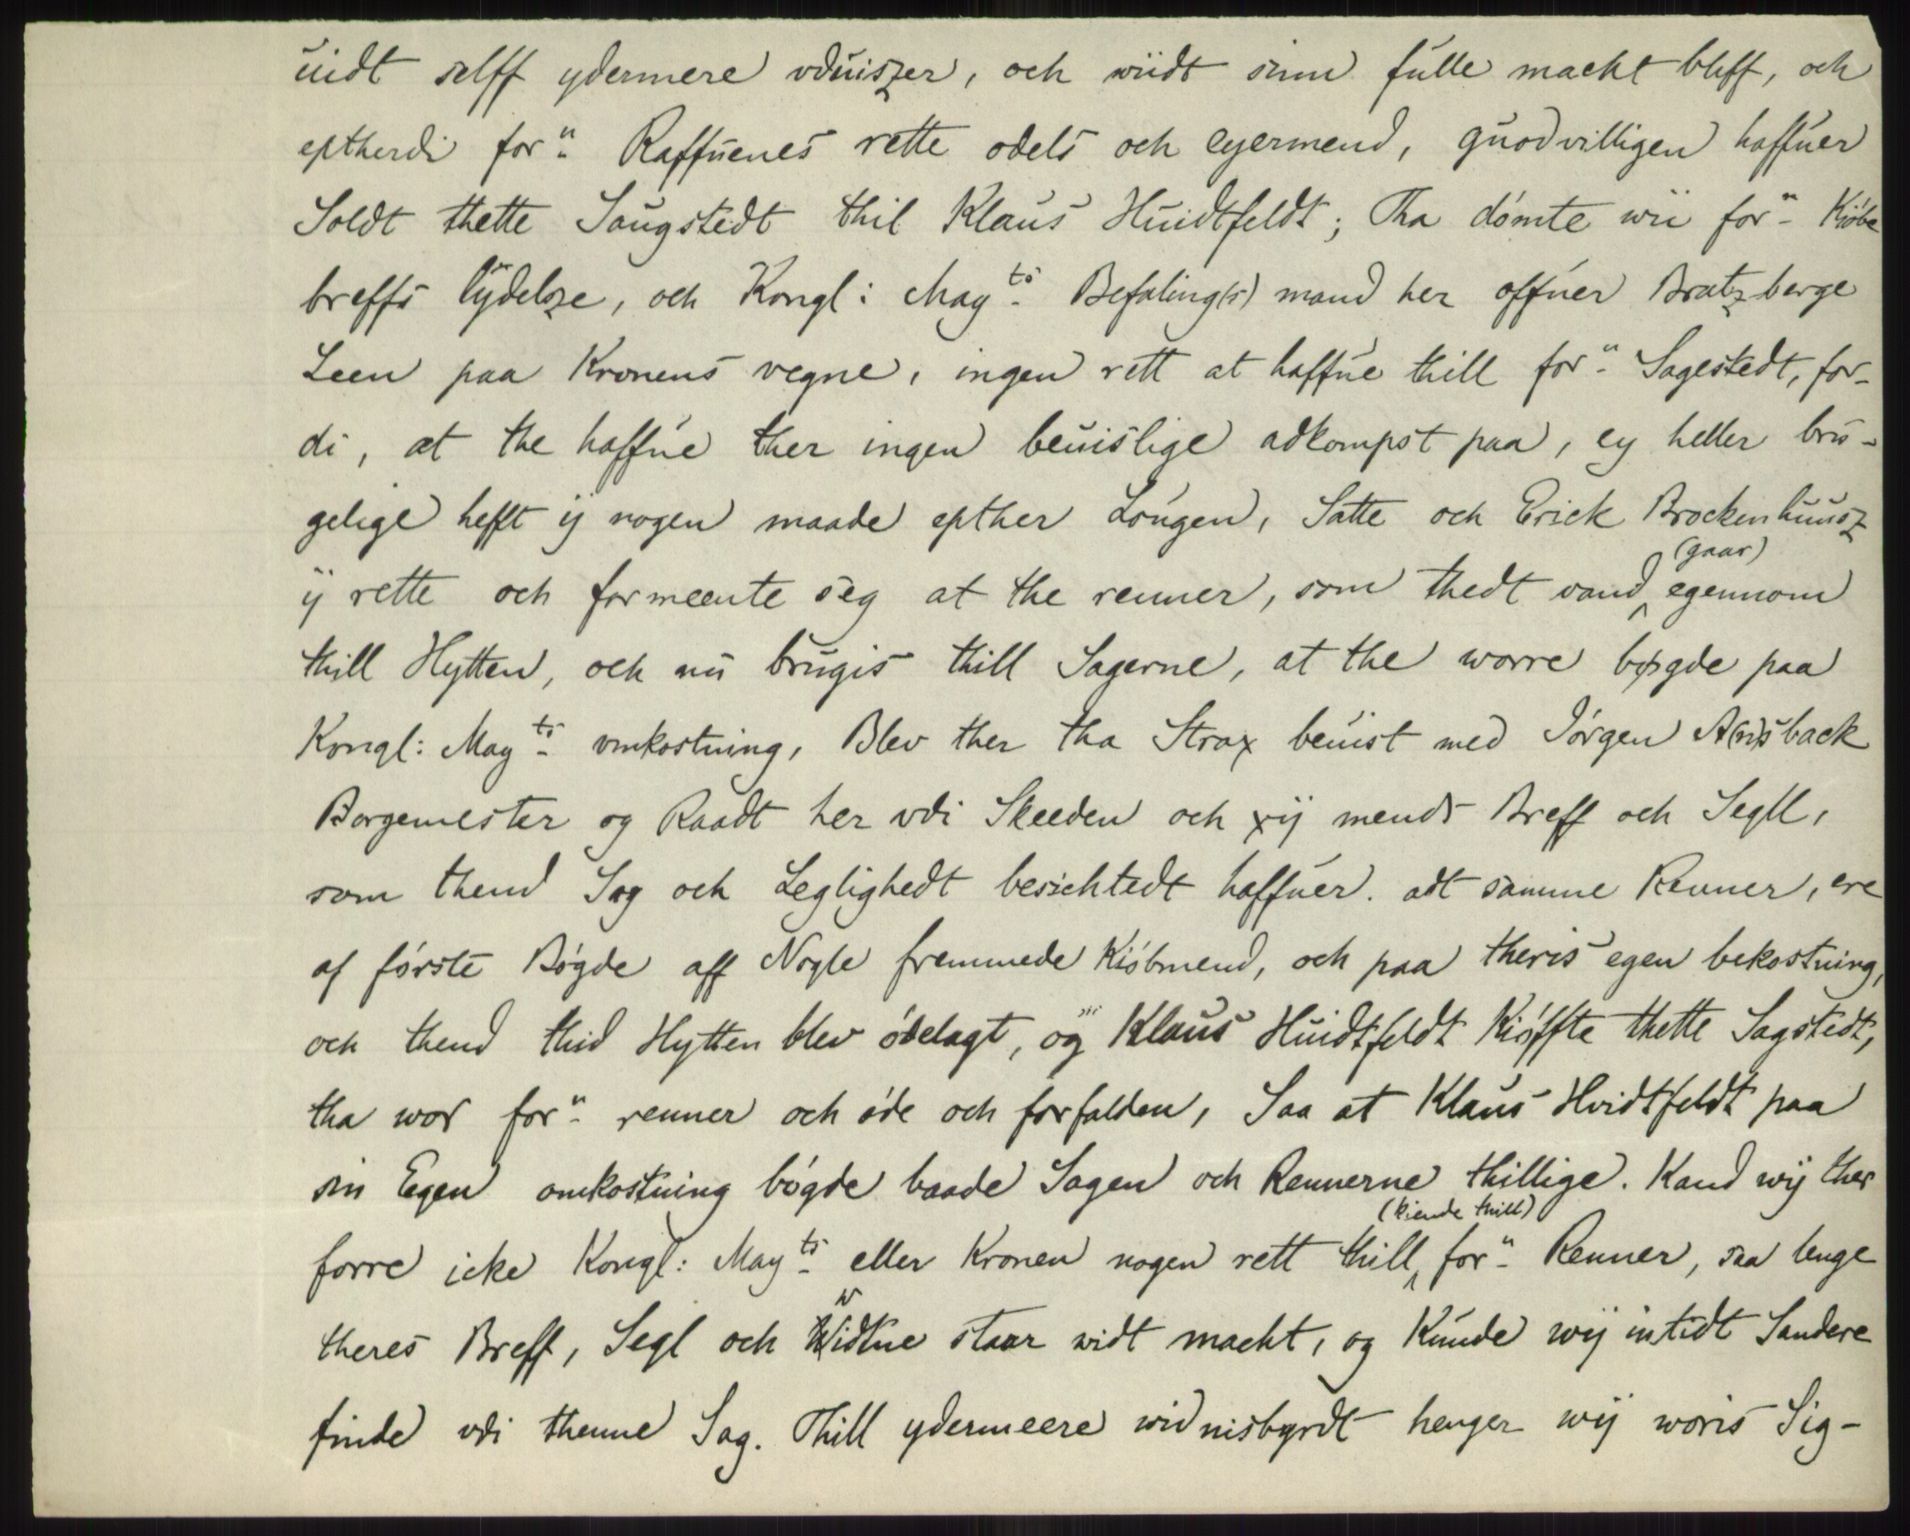 uidt selff ydermere vduiszer, och wiidt sinn fulle mackt bleff, och
eptherdi for.n Raffuenes rette odels och eyermend, guodvilligen haffuer
Soldt thette Saugstedt thil Klaus Huidtfeldt; Tha dømte wii for.n Kiøbe
breffs lydelsze, och Kongl: May.ts Befaling(s) mand her offuer Bratzberge
Leen paa Kronens vegne, ingen rett at haffue thill for.n Sagestedt, for-
di, at the haffue ther ingen beuislige adkompst paa, ey heller bru-
gelige hefft ij nogen maade epther Lougen, Satte och Erick Brockenhuusz
ij rette och formeente seg at the renner, som thedt vand (gaar) egennom
thill Hytten, och nu brugis thill Sagerne, at the worre bøgde paa
Kongl: May.ts omkostning, Blev ther tha Strax beuist med Jørgen A(n)sback
Borgemester og Raadt her vdi Skeeden och xij mends Breff och Segll,
som thend Sag och Leglighedt besichtedt haffuer. adt samme Renner, ere
af første Bøgde aff Nogle fremmede Kiøbmend, och paa theris egen bekostning,
och thend thid Hytten blev ødelagt, og Klaus Huidtfeldt Kiøffte thette Sagstedt,
tha wor for.n renner och øde och forfalden, Saa at Klaus Hvidtfeldt paa
sin Egen omkostning bøgde baade Sagen och Rennerne thillige. Kand wij ther
forre icke Kongl: May.ts eller Kronen nogen rett thill (kiende thill) for.n Renner, saa lenge
theres Breff, Segl och Widtne staar widt mackt, og Kunde wij intidt Sandere
finde vdi thenne Sag. Thill ydermeere widnisbyrdt henger wij woris Sig-